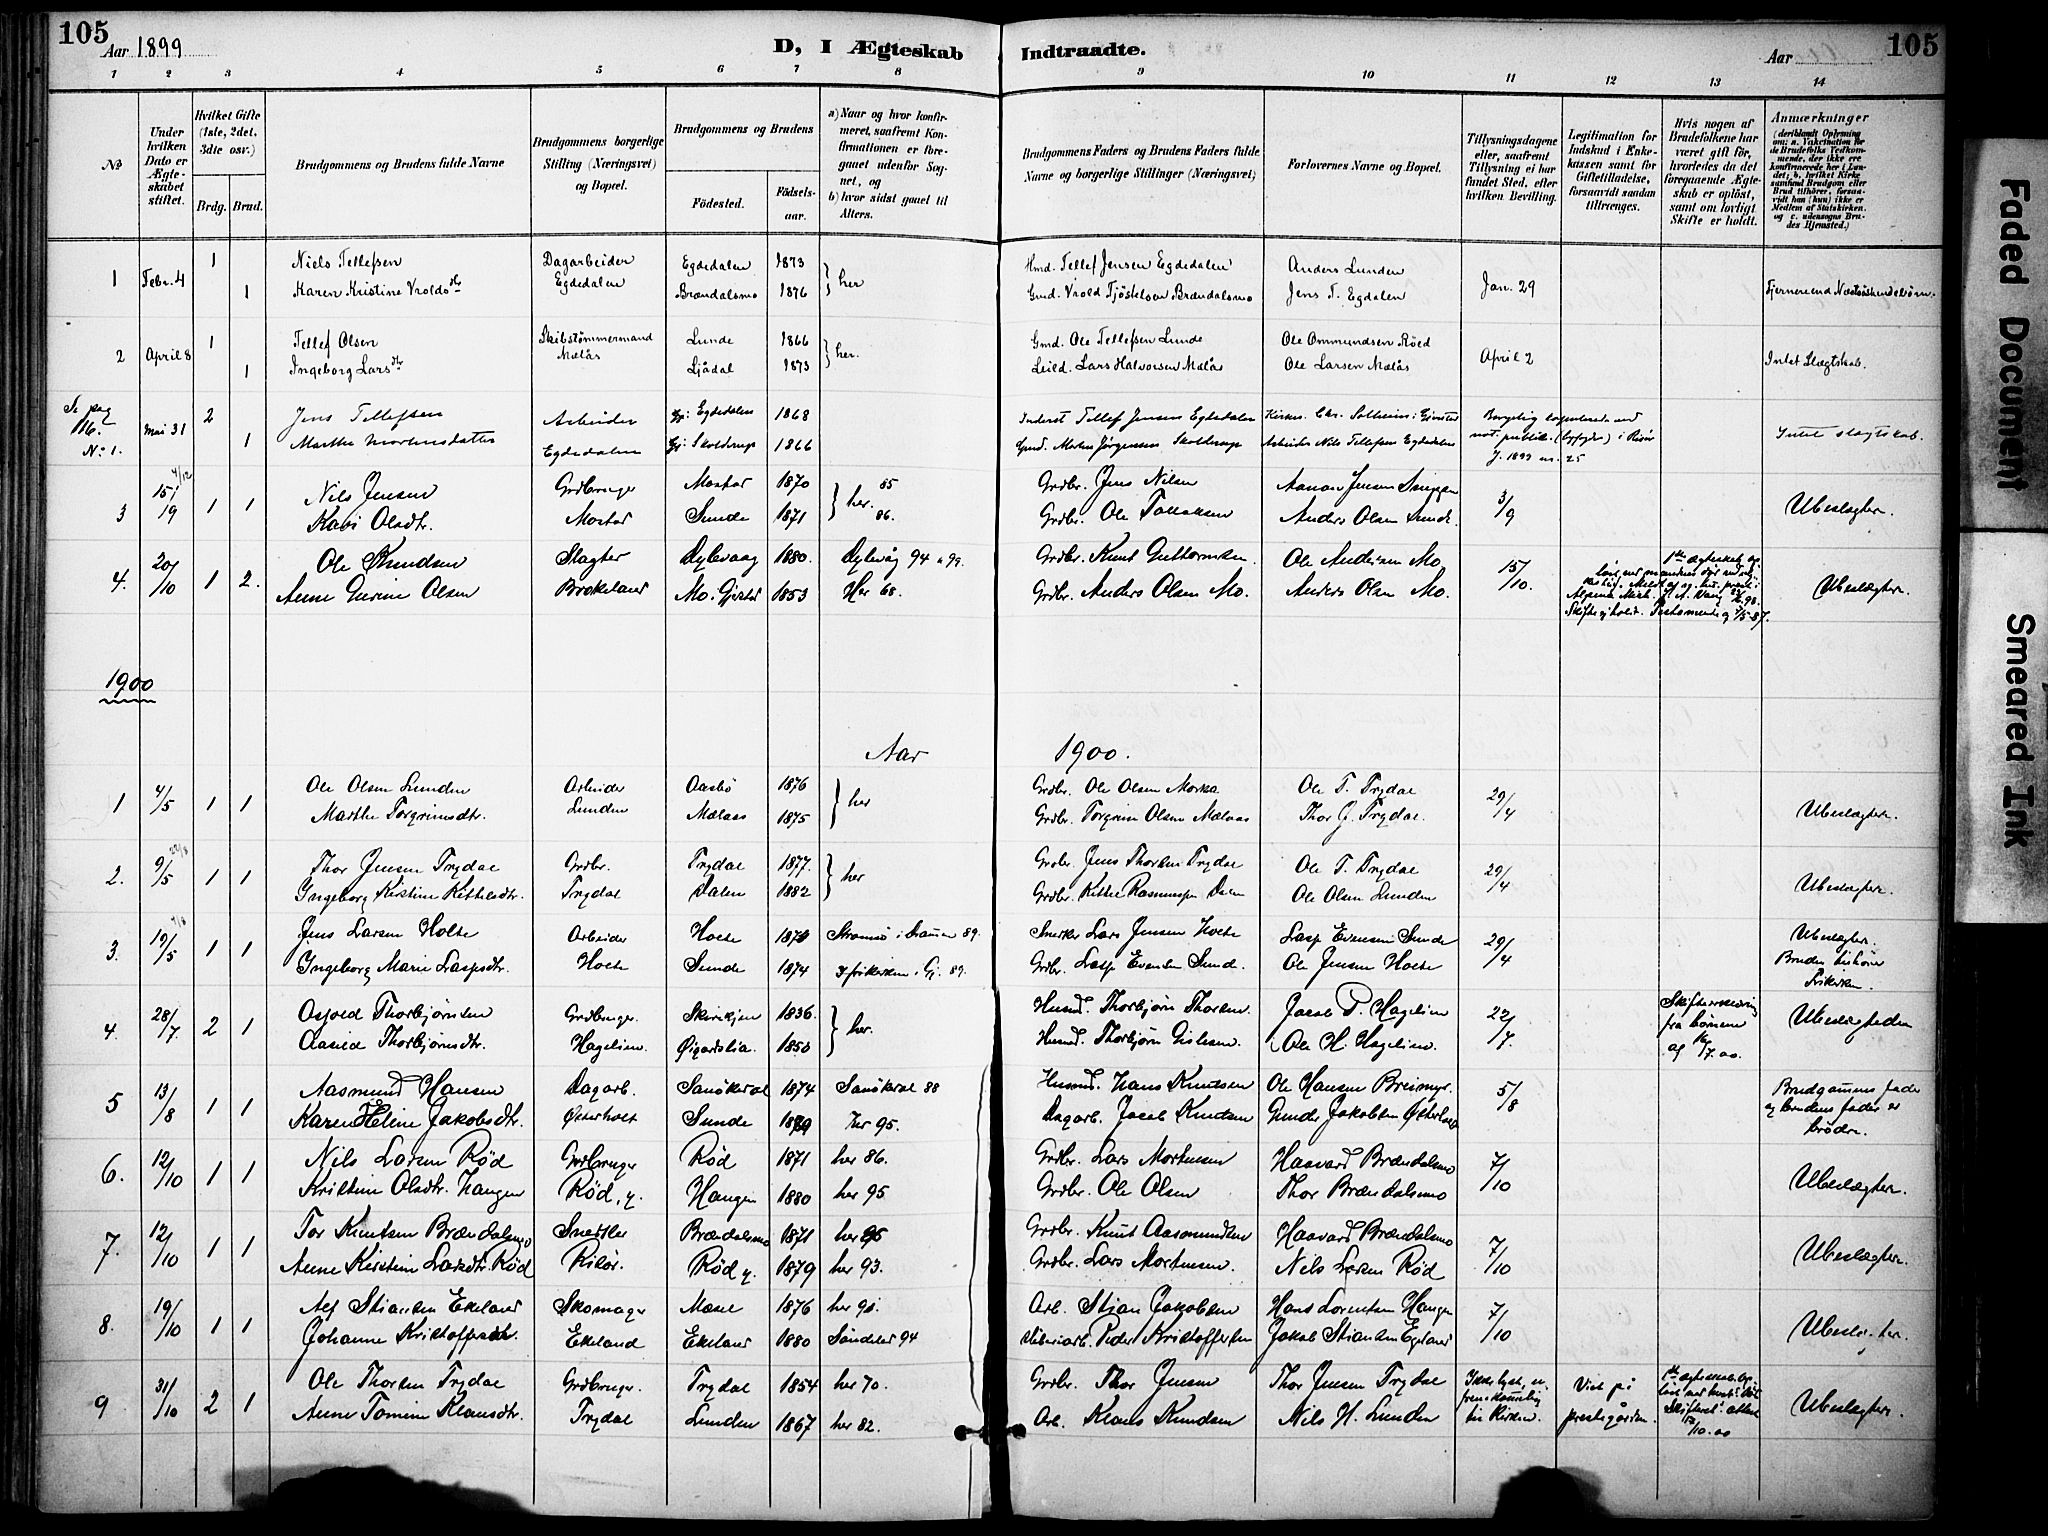 105
Aar 1899
D, I Ægteskab Indtraadte.
Aar
105
1 2 3 4 5 6 7 8 9 10 11 12 13 14
№
Under hvilken Dato er Ægteskabet stiftet.
Hvilket Gifte (1ste, 2det, 3die osv.)
Brdg. Brud.
Brudgommens og Brudens fulde Navne
Brudgommens borgerlige Stilling (Næringsvei) og Bopæl.
Brudgommens og Brudens
Fødested.
Fødselsaar.
a) Naar og hvor konfirmeret, saafremt Konfirmationen er foregaaet udenfor Sognet, og
b) hvor sidst gaaet til Alters.
Brudgommens Faders og Brudens Faders fulde Navne og borgerlige Stillinger (Næringsvei)
Forlovernes Navne og Bopæl.
Tillysningsdagene eller, saafremt Tillysning ei har fundet Sted, efter hvilken Bevilling.
Legitimation for Indskud i Enkekassen samt for Giftetilladelse, forsaavidt saadan tiltrænges.
Hvis nogen af Brudefolkene har været gift før, hvorledes da det foregaaende Ægteskab er opløst, samt om lovligt Skifte er holdt.
Anmærkninger (deriblandt Oplysning om: a. Vakcination for de Brudefolks Vedkommende, der ikke ere konfirmerede her i Landet; b. hvilket Kirkesamfund Brudgom eller Brud tilhører, forsaavidt han (hun) ikke er Medlem af Statskirken, og c. udensogns Brudes Hjemsted.)
1 Febr. 4 1 Niels Tellefsen Dagarbeider Egdedalen 1873 her Hmd. Tellef Jensen Egdedalen Anders Lunden Jan. 29
1 Karen Kristine Vroldsdtr Egdedalen Brændalsmo 1876 Gmd. Vrold Tjøstelsen Brændalsmo Jens T. Egdalen Fjernere end Næstsøskendebørn.
2 April 8 1 Tellef Olsen Skibstømmermand Lunde 1866 her. Gmd. Ole Tellefsen Lunde Ole Ommundsen Röed April 2
1 Ingeborg Larsdtr Mælås Ljådal 1873 Leild. Lars Halvorsen Mælås Ole Larsen Mælås Intet Slægtskab.
Se pag 116. No 1. Mai 31 2 Jens Tellefsen Arbeider Gj: Egdedalen 1868 Inderst Tellef Jensen Egdedalen Kirkes. Chr. Solheim i Gjerstad Borgerlig
1 Marthe Mortensdatter Egdedalen Gj: Skolderup 1866 Gmd. Morten Jørgensen Skolderup Arbeider Nils Tellefsen Egdedalen not. publik. (byfoged) i Risør Intet slægtskab.
J. 1899 nr. 25
3 15/19 4/12 1 1 Nils Jensen Grdbruger Mostad 1870 her. 85 Grdbr. Jens Nilsen 3/9
Kari Olsdtr. Mostad Sunde 1871 86. Grdbr. Ole Tallaksen Anders Olsen Sunde. Ubeslægtede.
4. 20/10 1 2. Ole Knudsen Slagter Dybvaag 1880. Dybvåg 94 Grdbr. Knut Guttormsen Ole Andersen Mo 15/10
Anne Gurine Olsen Brokeland Mo. Gjerstad 1853 Her 68. Grdbr. Anders Olsen Mo. Anders Olsen Mo. Ubeslægtede.
1900
Aar 1900.
1 4/5 1 1 Ole Olsen Lunden Arbeider Aasbø 1876 her Grdbr. Ole Olsen Morka Ole T. Trydal 29/4
Marthe Torgrimsdtr. Lunden Mælaas 1875 Grdbr. Torgrim Olsen Mælaas Thor J. Trydal. Ubeslægtede.
2. 9/5 1 1 Thor Jensen Trydal Grdbr. Trydal 1877. her Grdbr. Jens Thorsen Trydal Ole T. Trydal 29/4
Ingeborg Kirstine Kittelsdtr. Trydal Dalen 1882 Grdbr. Kittel Rasmussen Dalen Ole Olsen Lunden Ubeslægtede.
3. 19/5 1 1 Jens Larsen Holte Arbeider Holte 1873 Strømsø i Dramen 89. Snerker Lars Jensen Holte Lasse Evensen Sunde 29/4 Ubeslægtede.
Ingeborg Marie Lassesdtr. Holte Sunde 1874 I frikirken i Gj. 89. Grdbr. Lasse Evensen Sunde. Ole Jensen Holte Bruden tilhører Frikirken.
4. 28/7 2 1 Osjoed Thorbjørnsen Grdbruger. 1836. her. Husmd. Thorbjørn Thorsen Jacob P. Hagelien 22/7 Skifteerklæring fra børnene af 16/7.00. Ubeslægtede
Aasild Thorbjørnsdtr. Hagelien. Øigardslia. 1850 Husmd. Thorbjørn Gislesen. Ole H. Hagelien.
5 13/8 1 1 Aasmund Hansen Dagarb. Sandøkedal 1874 Sandøkedal 88 Husmd. Hans Knutsen Ole Hansen Breimyr. 5/8 Brudgommens fader og brudens fader er brødre.
Karen Heline Jakobsdtr. Østerholt Sunde 1879 Her 95. Dagarb. Jacob Knutsen Gunder Jakobsen Østerholt
6. 12/10 1 1 Nils Larsen Rød Grdbruger Rød 1871 her 86. Grdbr. Lars Mortensen Haavard Brændalsmo 7/10
Kristine Olsdtr. Haugen Rød, y. Haugen 1880 her 95 Grdbr. Ole Olsen Thor Brændalsmo Ubeslægtede.
7. 12/10 1 1 Tor Knutsen Brændalsmo Snedker Brændalsmo 1871 her 86 Grdbr. Knut Aasmundsen Haavard Brændalsmo 7/10
Anne Kirstine Larsdtr. Rød Risør. Rød y. 1879 her 93. Grdbr. Lars Mortensen. Nils Larsen Rød Ubeslægtede.
8. 19/10 1 1 Alf Stiansen Ekeland Skomager Mæsel 1876 her 91. Arb. Stian Jakobsen Hans Lorentsen Haugen 7/10
Johanne Kristoffersdtr. Ekeland Ekeland 1880 Søndeled 94 Peder Kristoffersen Jakob Stiansen Egeland Ubeslægtede.
9 31/10 2 1 Ole Thorsen Trydal Grdbruger. Trydal 1854 her 70. Grdbr. Thor Jensen Thor Jensen Trydal Viet på prestegården.
Anne Tomine Klausdtr. Trydal Lunden 1867 her 82. Arb. Klaus Knudsen Nils H. Lunden 13/10.00 Ubeslægtede.
Faded Document
Smeared Ink